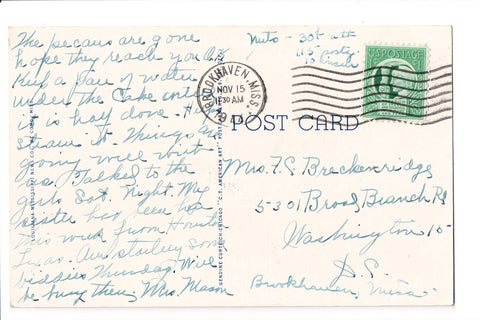 The pecans are gone
hope they reach you O.K.
Keep a pan of water
under the Cake until
it is half done.
steam it. Things are
going well with
us. Talked to the
girls Sat. Night. My
sister has been here
this week from Houston
Texas. Am starting some
biddies Thursday. Will
be busy then. Mrs. Mason
Nuts - 30¢ a lb
.15 postg
BROOKHAVEN, MISS.
NOV 15
1130 AM
1944
U.S. POSTAGE
1¢
POST CARD
Mrs. F. S. Breckenridge
5301 Broad Branch Rd
Washington 15
D.C.
Brookhaven, Miss.
GENUINE CURTEICH-CHICAGO "C.T. AMERICAN ART" POST